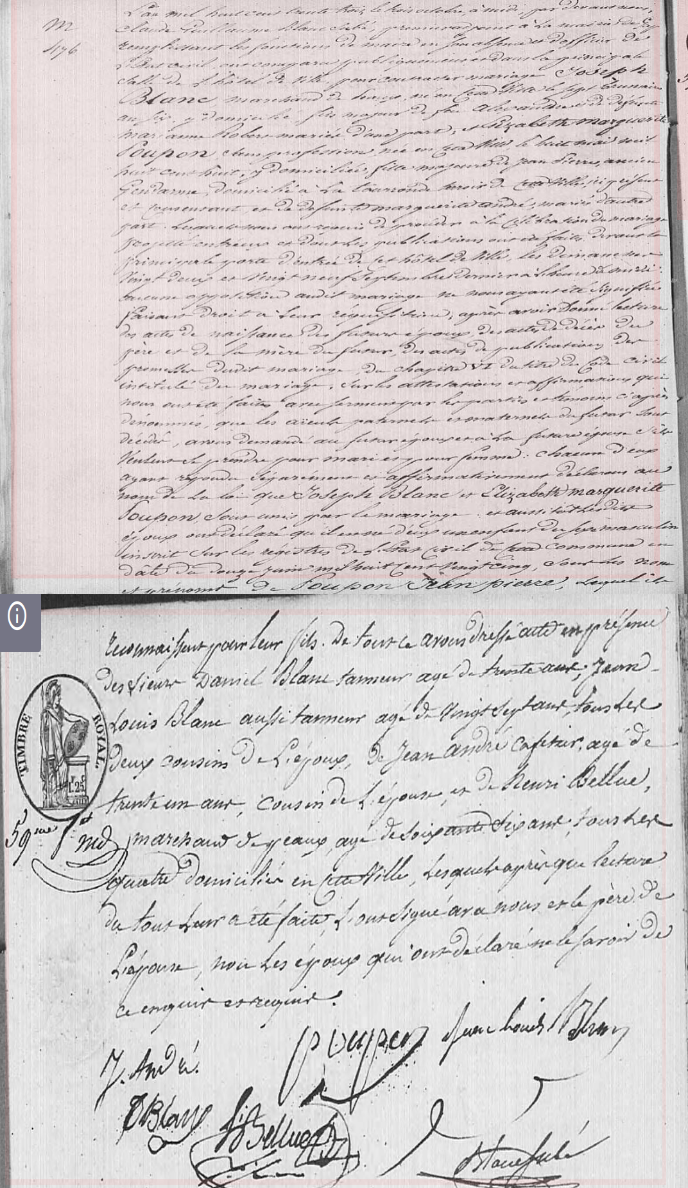 M
476
L'an mil huit cent trente trois, le trois octobre, à midi, par devant nous,
Claude Guillaume Blanc
remplissant les fonctions de maire en l'absence et d'officier de
l'état civil, ont comparu publiquement et dans la principale
salle de l'hôtel de ville pour contracter mariage Joseph
Blanc, marchand de né en cette ville le sept
an six, y domicilié, fils majeur de feu Alexandre et de défunte
marianne Robert mariés d'une part, et Elizabeth marguerite
Poupon sans profession, née en cette ville le huit mai mil
huit cent huit, y domiciliée, fille majeure de jean Pierre, ancien
Gendarme, domicilié à terroir de cette ville, ici présent
et consentant et de défunte marguerite andré, mariés d'autre
part. Lesquels nous ont requis de procéder à la célébration du mariage
projetté entr'eux et dont les publications ont été faites devant la
principale porte d'entrée de cet hôtel de ville, les dimanches
Vingt deux et vingt neuf Septembre dernier à l'heure de midi.
aucune opposition audit mariage ne nous ayant été signifiée
faisant droit à leur réquisition, après avoir donné lecture
des actes de naissance des futurs époux, des actes de décès du
père et de la mère du futur, des actes de publications des
promesses dudit mariage, du chapitre VI du titre du Code civil
intitulé du mariage. Sur les attestations et affirmations qui
nous ont été faites avec serment par les parties et témoins ci après
dénommés, que les aïeuls paternels et maternels du futur sont
décédés, avons demandé au futur époux et à la future épouse s'ils
veulent se prendre pour mari et pour femme: chacun d'eux
ayant répondu séparément et affirmativement déclarons au
nom de la loi que Joseph Blanc et Elizabeth marguerite
Poupon sont unis par le mariage et aussitôt lesdits
époux ont déclaré qu'il est né d'eux un enfant du sexe masculin
inscrit sur les registres de l'état civil de cette commune en
date du douze juin mil huit cent vingt cinq, sous les nom
et prénoms de Poupon Jean pierre, lequel ils
reconnaissent pour leur fils. De tout ce avons dressé acte en présence
des Sieurs Daniel Blanc tanneur agé de trente ans, Jean
Louis Blanc aussi tanneur agé de vingt sept ans, tous les
deux cousins de l'époux, de Jean André cafetier, agé de
trente un ans, cousin de l'épouse, et de Henri Bellue,
marchand de peaux, agé de soixante six ans, tous les
quatre domiciliés en cette ville, lesquels après que lecture
du tout leur a été faite, l'ont signé avec nous et le père de
l'épouse, non les époux qui ont déclaré ne le savoir de
ce enquis et requis.
TIMBRE ROYAL
59me
J. André.
poupon
Jean Louis Blanc
D Blanc
h Bellue